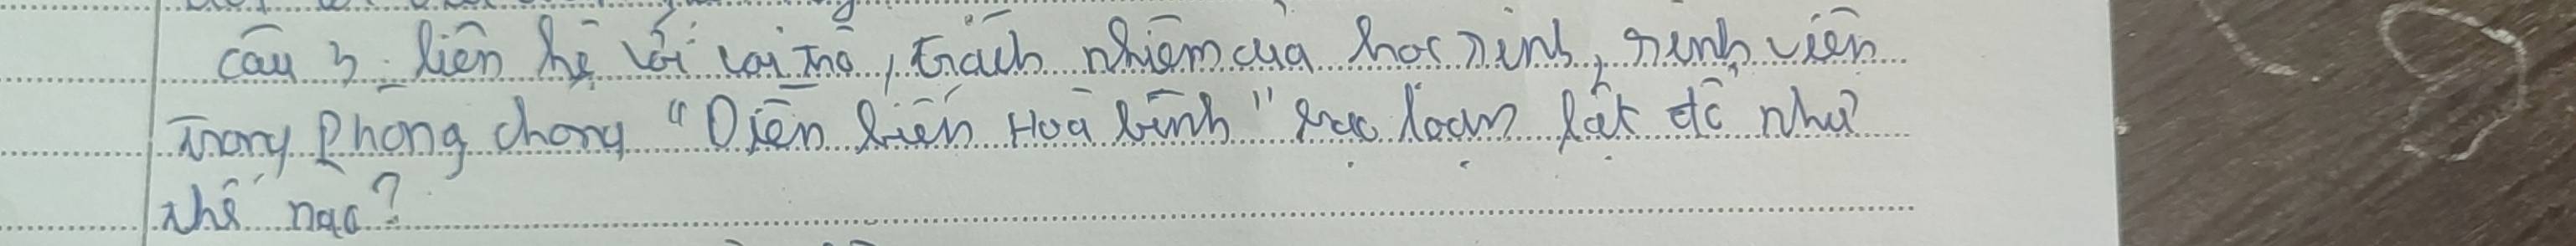 Câu 3. liên hệ với vai trò, trách nhiệm của học sinh, sinh viên
trong phòng chống "Diễn biến Hoà bình" bạo loạn lật đổ như
thế nào?